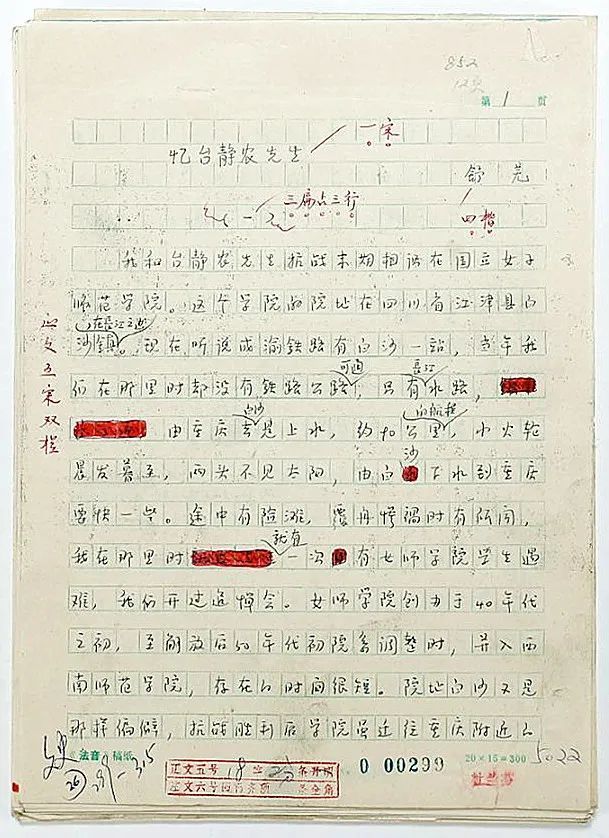 852
12页
第 1 页
一宋
忆台静农先生
舒芜
三扁占三行
四楷
一
我和台静农先生抗战末期相识在国立女子
师范学院。这个学院的院址在四川省江津县白
在长江之边
沙镇。现在听说成渝铁路有白沙一站，当年我
正文五宋双栏
可通 长江
们在那里时却没有铁路公路，只有水路，
白沙 的航程
由重庆去是上水，约90公里，小火轮
沙
晨发暮至，两头不见太阳，由白下水到重庆
要快一些。途中有险滩，覆舟惨祸时有所闻，
就有
我在那里时一次有女师学院学生遇
难，我们开过追悼会。女师学院创办于40年代
之初，至解放后50年代初院系调整时，并入西
南师范学院，存在的时间很短。院址白沙又是
那样偏僻，抗战胜利后学院虽迁往重庆附近的
《法音》稿纸
正文五号18字25条齐栏
正文六号 条全角
0 00299
20×15=300
5022